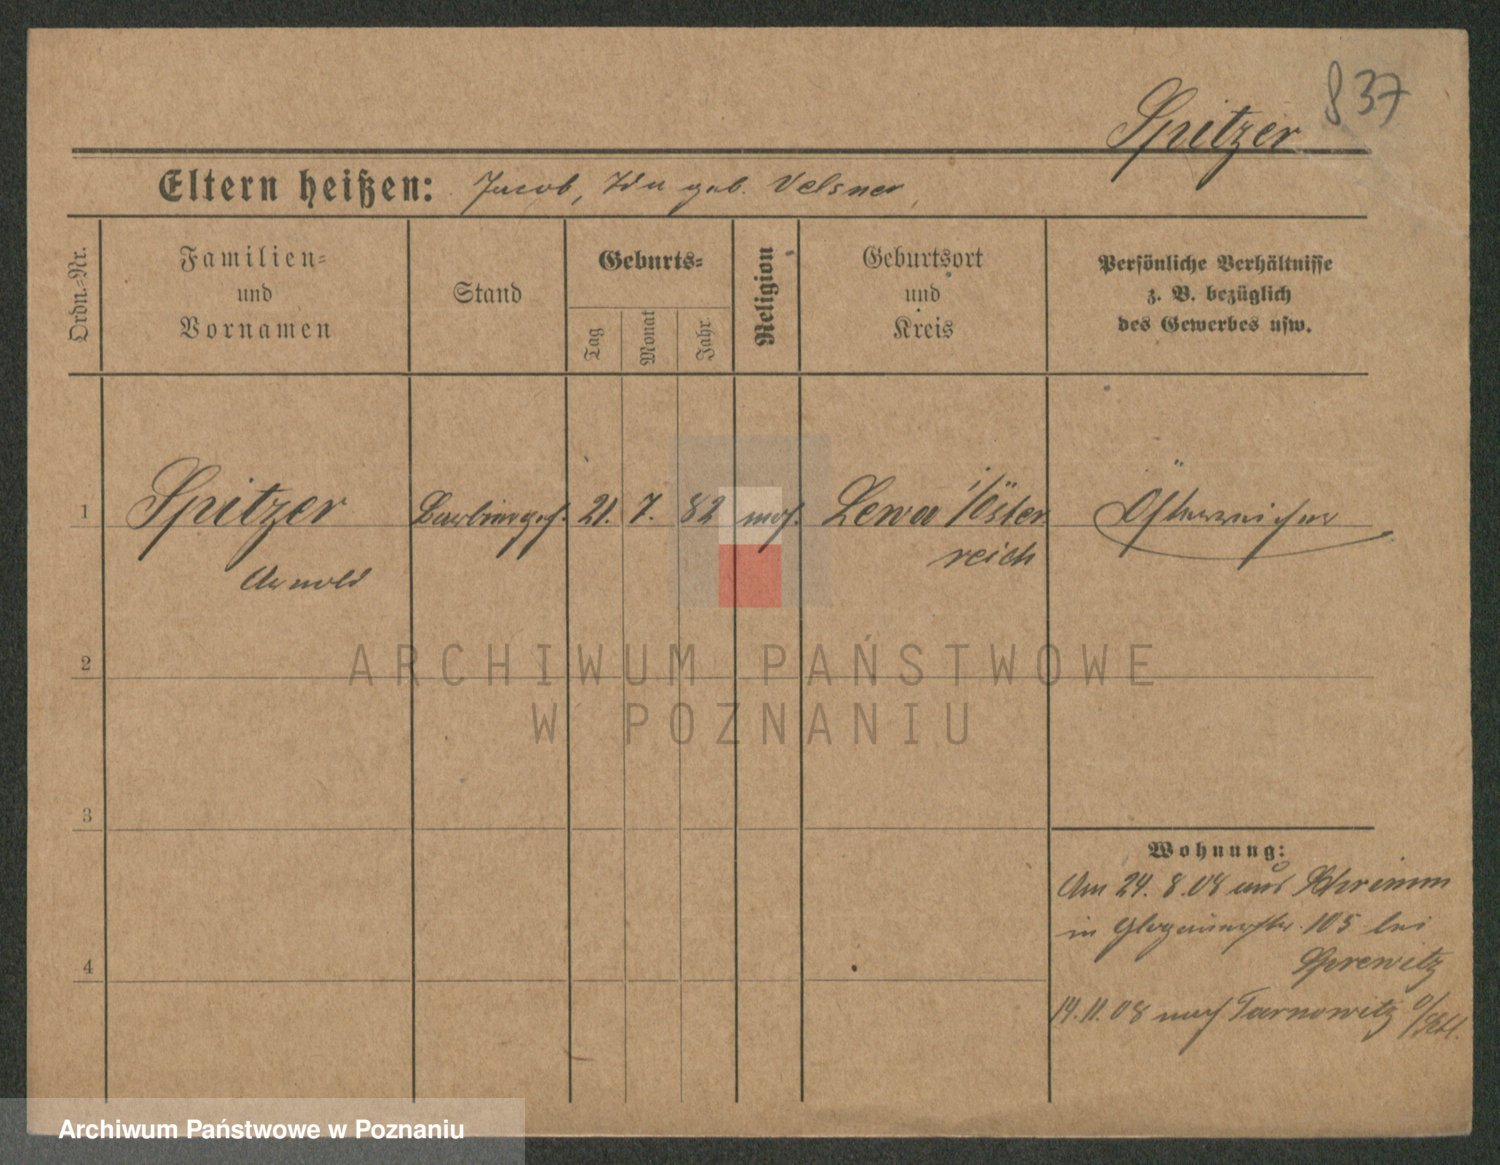 837
Spitzer
Eltern heißen: Jacob, Ida geb. Velsner
Ordn.-Nr.
Familien-
und
Vornamen
Stand
Geburts-
Tag
Monat
Jahr
Religion
Geburtsort
und
Kreis
Persönliche Verhältnisse
z. B. bezüglich
des Gewerbes usw.
1
Spitzer
Arnold
Barbiergeh.
21.
7.
82
mos.
Lewa i/Öster
reich
Österreicher
2
ARCHIWUM PAŃSTWOWE
W POZNANIU
3
4
Wohnung:
Am 24. 8. 08 aus Schrimm
in Glogauerstr. 105 bei
14.11.08 nach Tarnowitz o/Schl.
Archiwum Państwowe w Poznaniu